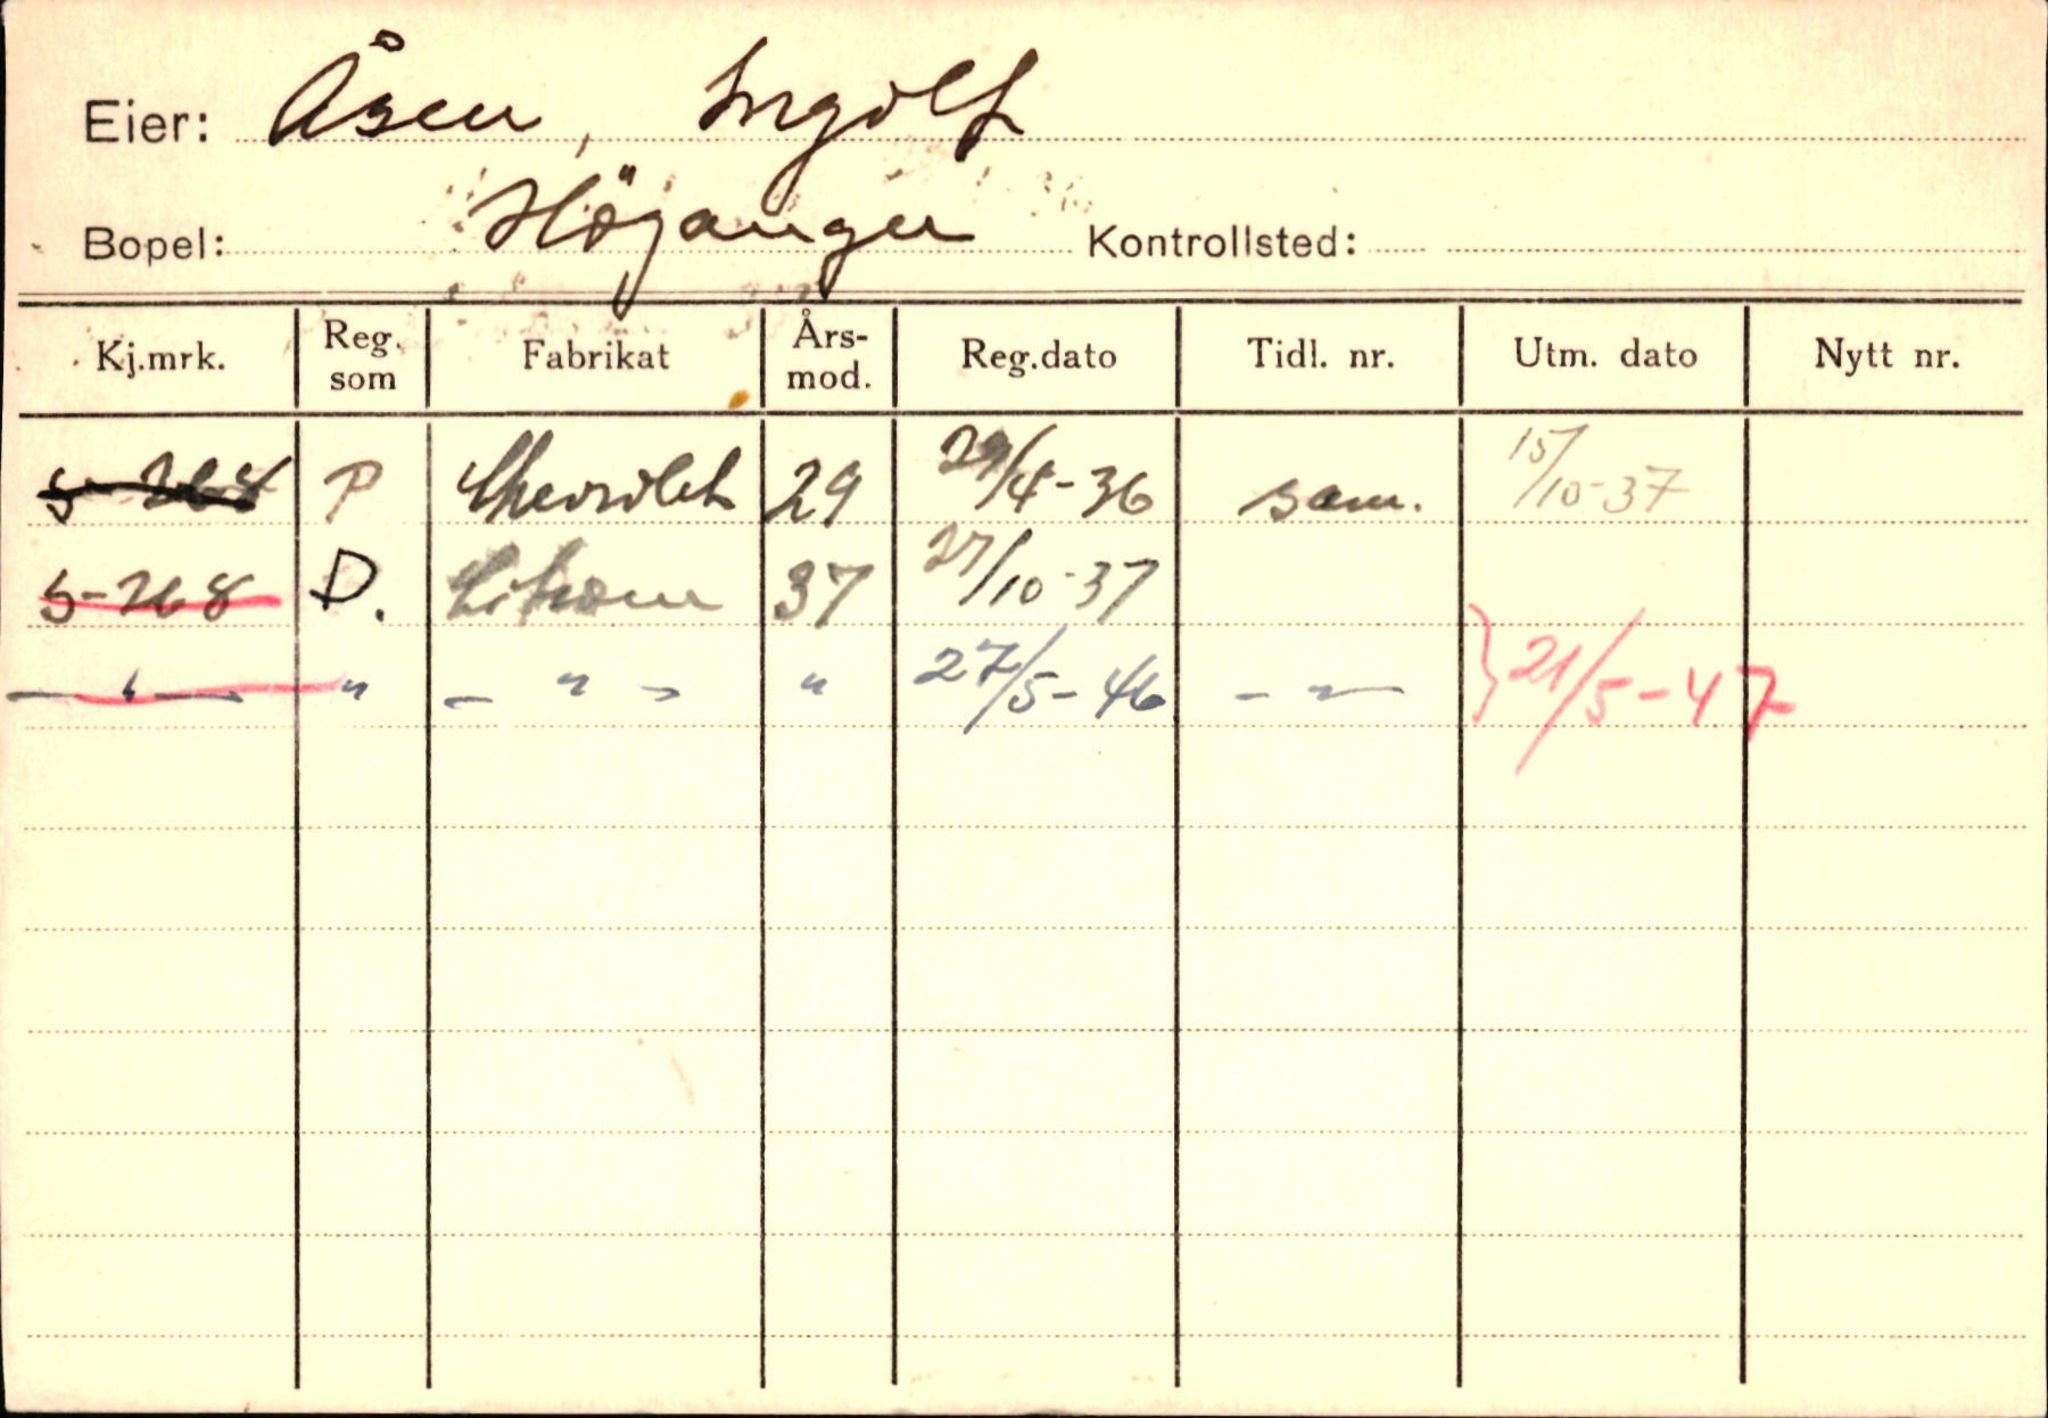 Eier: Åsen, Ingolf
Bopel: Höyanger Kontrollsted:
Kj.mrk. Reg. som Fabrikat Års-mod. Reg.dato Tidl. nr. Utm. dato Nytt nr.
S-268 P Chevrolet 29 29/4-36 sam. 15/10-37
S-268 D. Citroen 37 27/10-37
— " — " — " — " 27/5-46 — " — } 21/5-47